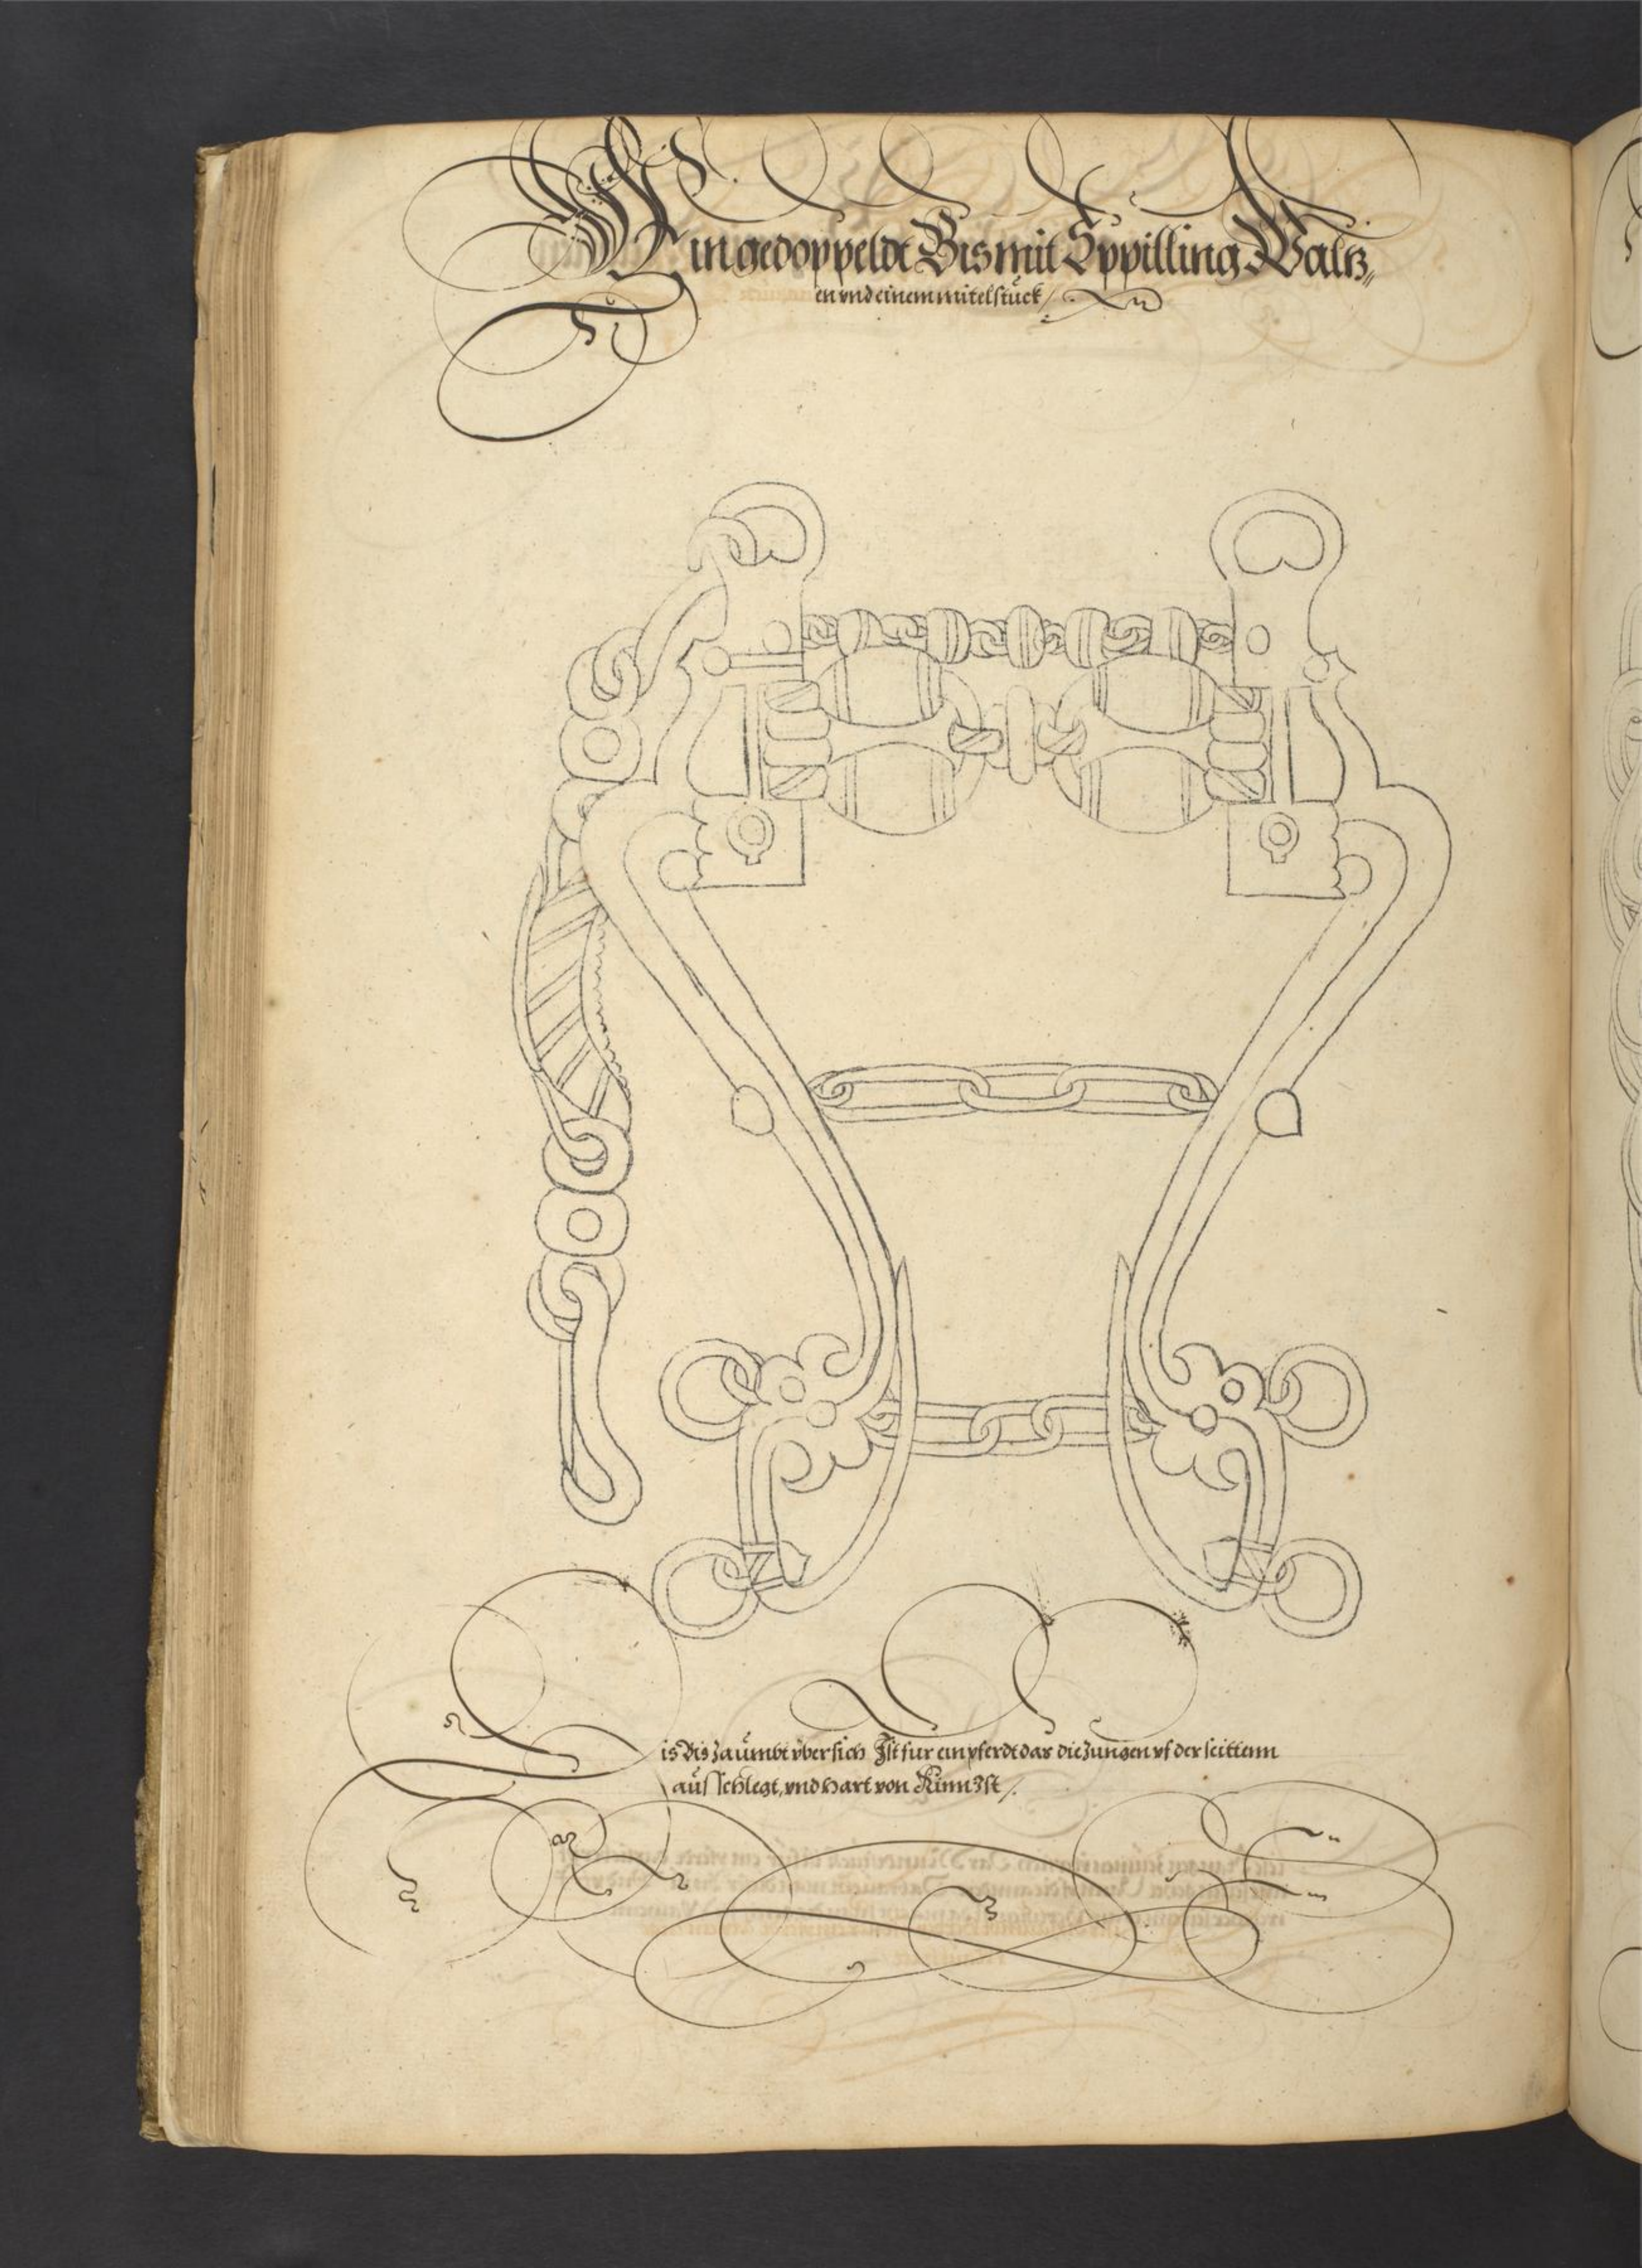 Ein gedoppeldt Bis mit Sppilling Waltz„
en vnd einem mitelstück /
Dis Bis Zaümbt vber sich Ist fur ein pferdt das die Zungen vf der seittenn
aüsschlegt, vnd hart von Kinn Ist /.